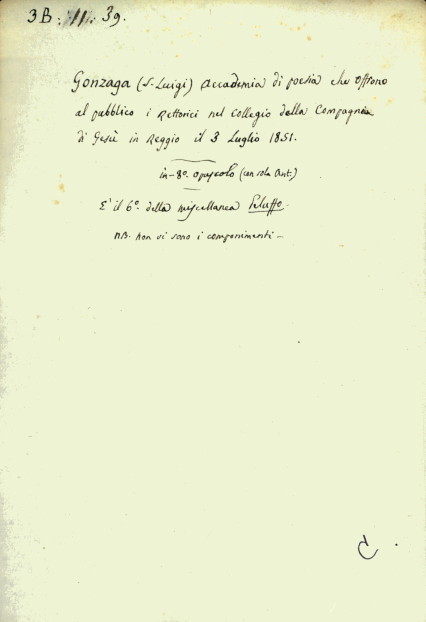 3B. 11. 39.
Gonzaga (S. Luigi) Accademia di poesia che offrono
al pubblico i Rettorici nel Collegio della Compagnia
di Gesù in Reggio il 3 Luglio 1851.
in-8º. opuscolo (con sola Ant.)
E' il 6º. della miscellanea Peluffo.
NB. non vi sono i componimenti -
C.